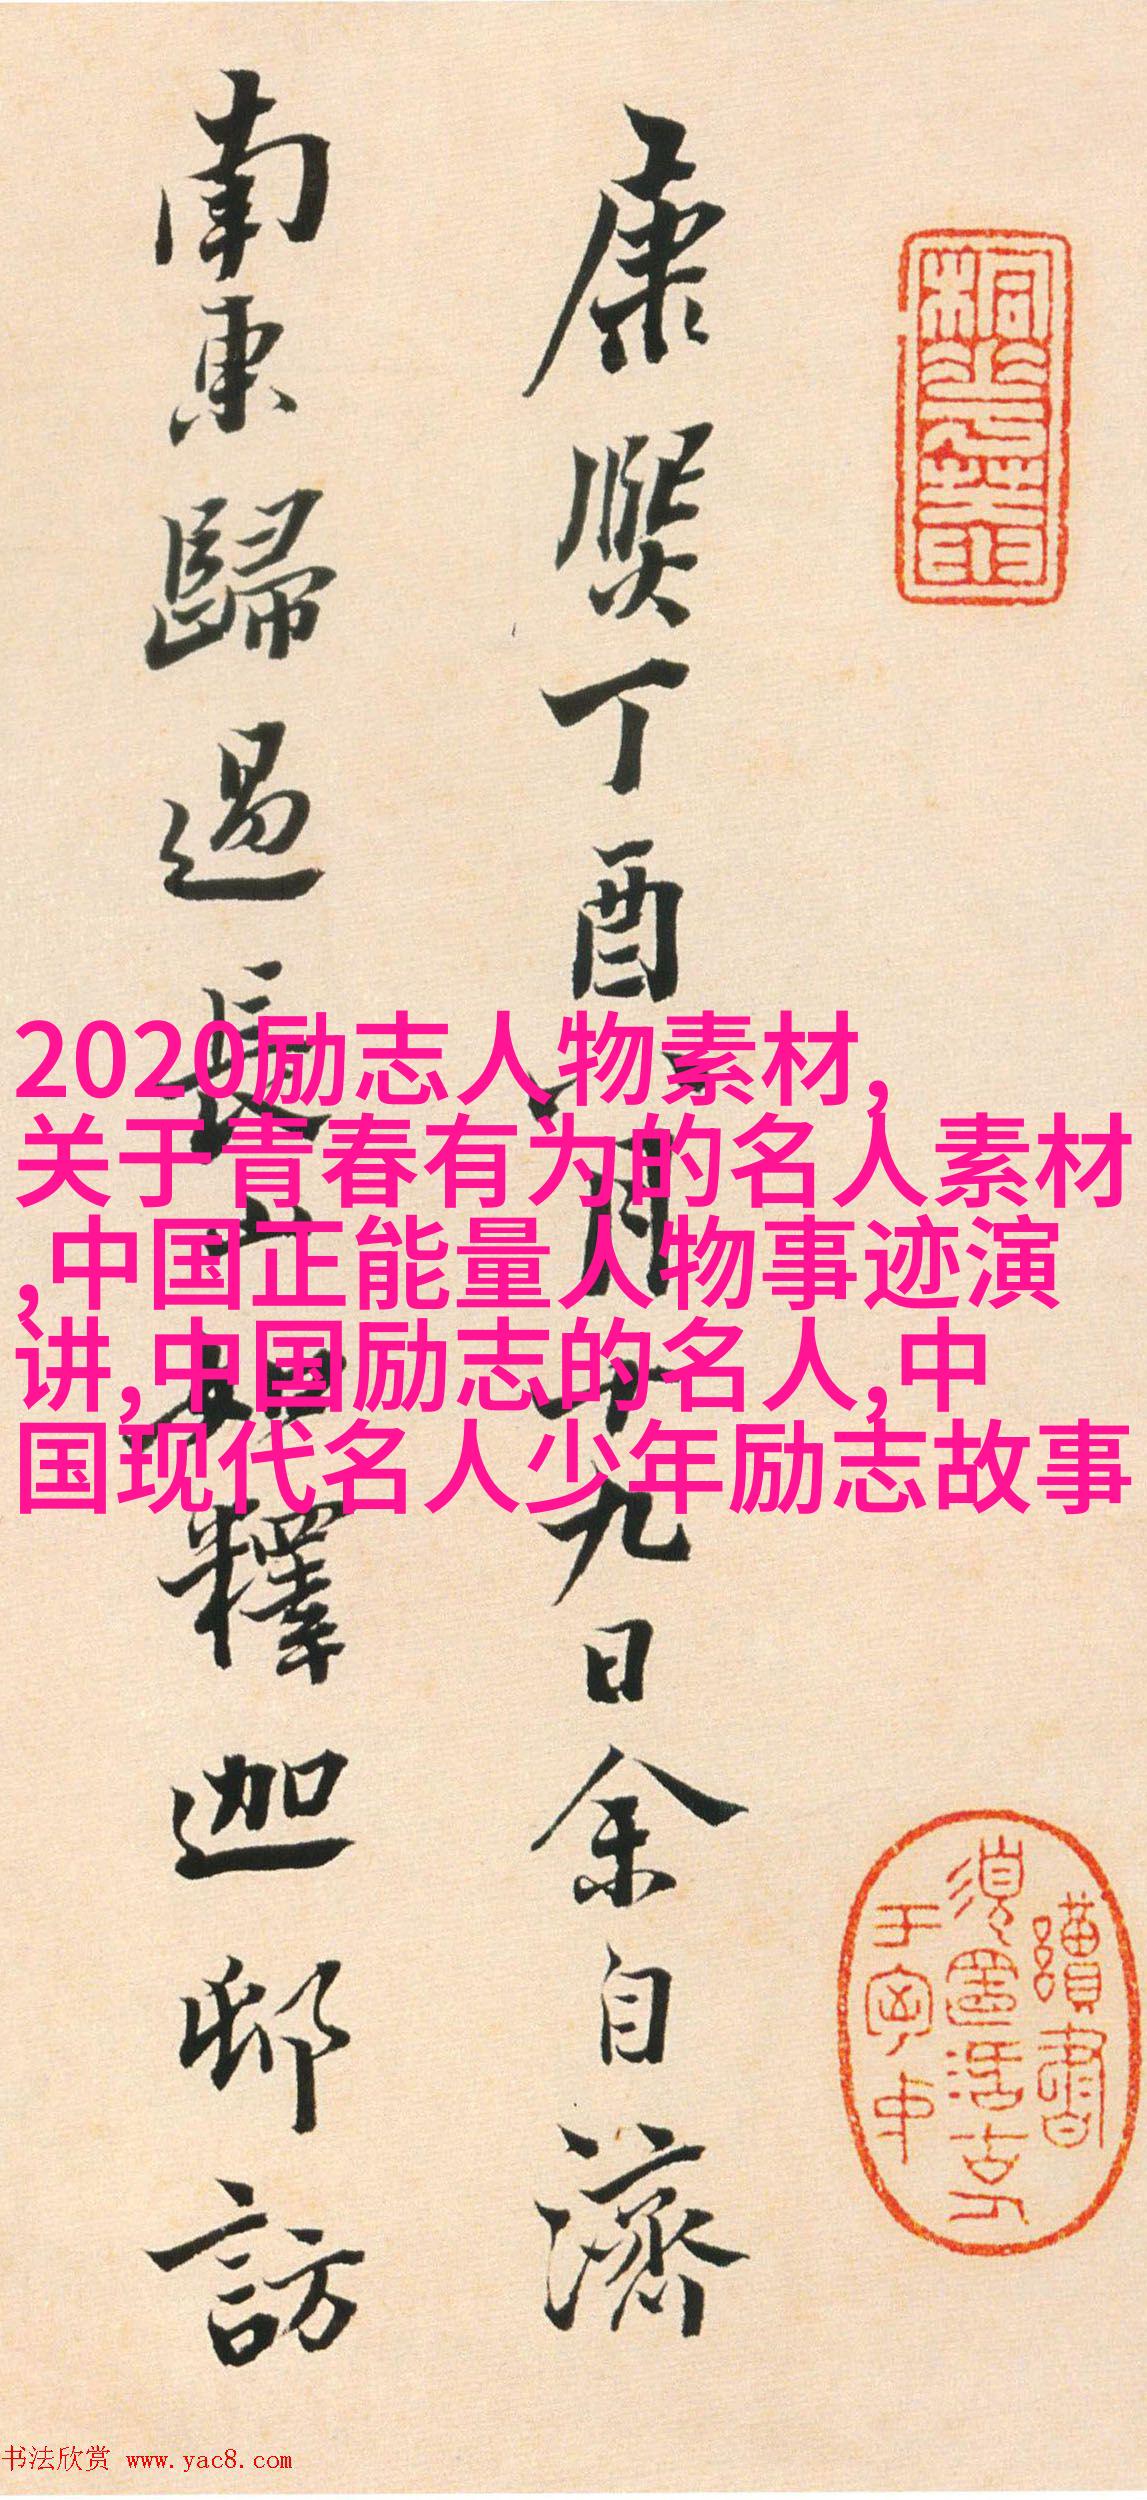 康熙丁酉八月十九日余自濟
南東歸過長山如釋迦邨訪
2020励志人物素材,
关于青春有为的名人素材
,中国正能量人物事迹演
讲,中国励志的名人,中
国现代名人少年励志故事
书法欣赏 www.yac8.com